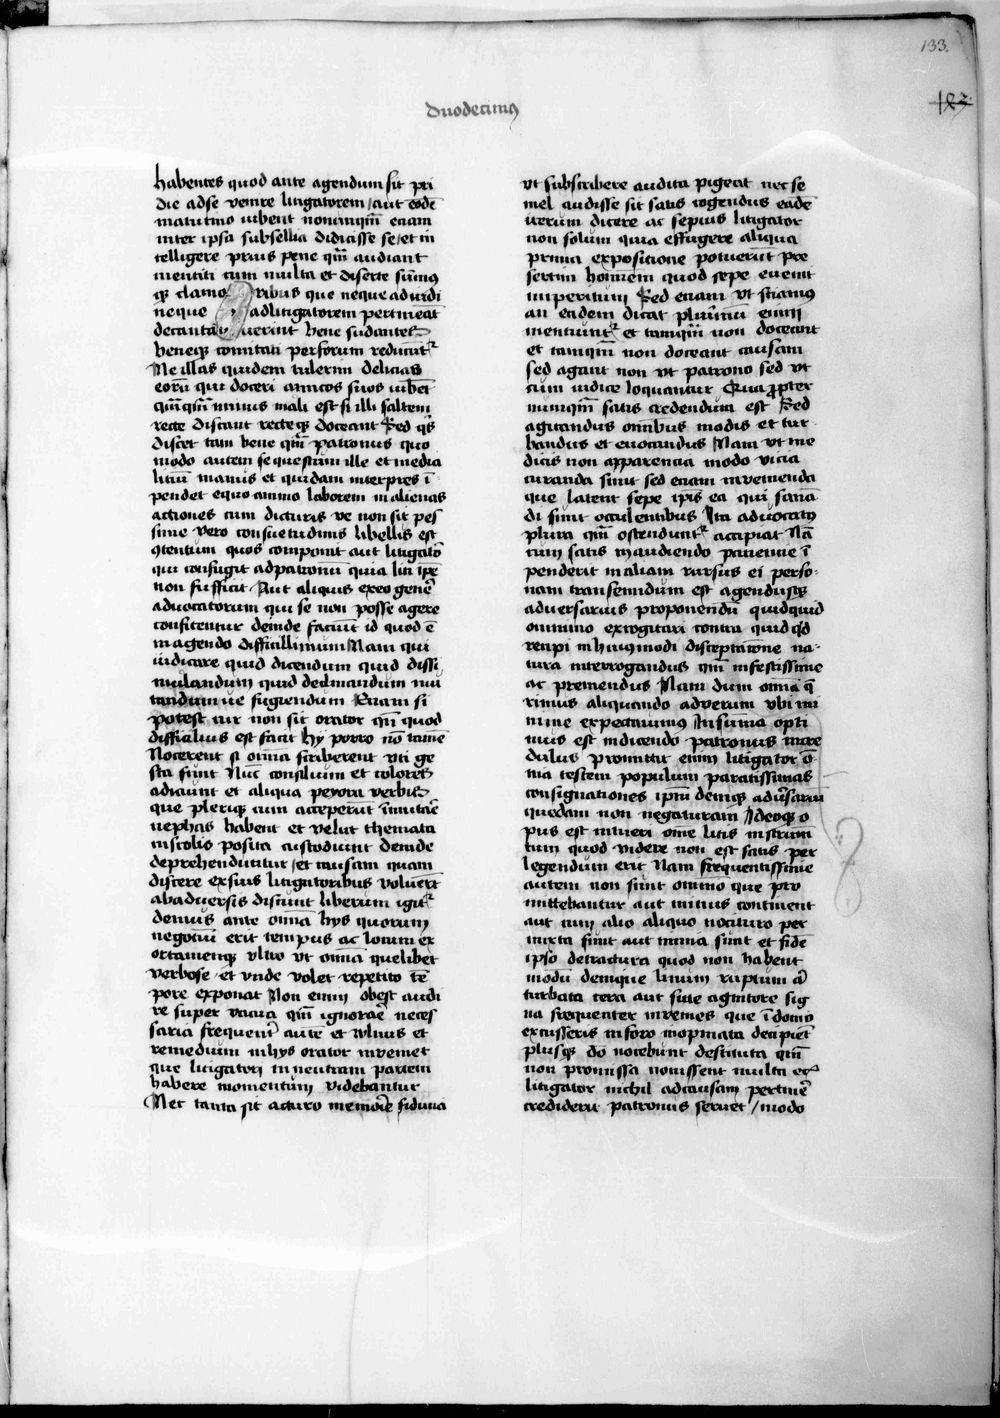 133.
duodecimꝰ
habentes quod ante agendum sit pri
die adse venire litigatorem / aut eodē
matutino iubent nonnūqm̄ etiam
inter ipsa subsellia didicisse se / et in
telligere prius pene qm̄ audiant
mentiti cum multa et diserte sum̄ꝰ
qꝫ clamoribus que neque ad iudi
neque ad litigatorem pertineāt
decantauerint bene sudantes
beneqꝫ comitati perforum reducūtᷣ
Ne illas quidem tulerim delicias
eorū qui doceri amicos suos iubēt
qm̄qm̄ minus mali est si illi saltem
recte discant recteqꝫ doceant Sed qͥs
discet tam bene qm̄ patronus quo
modo autem sequestrum ille et media
litiū manus et quidam interpres ī
pendet equo animo laborem in alienas
actiones cum dicturis ve non sit pes
sime vero consuetudinis libellis est
ꝯtentum quos componit aut litigatō
qui confugit adpatronū quia liti ip̄e
non sufficit / Aut aliquis exeo genēr
aduocatorum qui se non posse agere
confitentur deinde faciūt id quod ē
in agendo difficillimum Nam qui
iudicare quid dicendum quid dissi
mulandum quid declinandum mu
tandum ve fugiendum Etiam si
potest cur non sit orator qn̄ quod
difficilius est facit hy porro nō tamē
Nocerent si omīa scriberent vti ge
sta sunt Nūc consilium et colores
adiciunt et aliqua peyora verbis
que pleriqꝫ cum acceperūt īmutāre
nephas habent et velut themata
in scolis posita custodiunt deinde
deprehenduntur / et causam quam
discere exsuis litigatoribus voluerūt
abaduersis discunt liberum igitᷣ
demus ante omīa hys quorum
negotiū erit tempus ac locum ex
ortamerqꝫ vltro vt omīa quelibet
verbose / et vnde volet repetito tē
pore exponat Non enim obest audi
re super vacua qm̄ ignorāre neces
saria frequentᷣ autē et wlnus et
remedium in hys orator inveniet
que litigatori in neutram partem
habere momentum videbantur
Nec tanta sit acturo memorie fiducia
vt subscribere audita pigeat nec se
mel audisse sit satis cogendus eadē
uerum dicere ac sepius litigator
non solum quia effugere aliqua
prima expositione potuerūt pre
sertim hominem quod sepe euenit
imperitum Sed etiam vt sciamꝰ
an eadem dicat plurimū enim
mentiuntᷣ et tamqm̄ non doceant
et tamqm̄ non doceant causam
sed agant non vt patrono sed vt
cum iudice loquantur Qua ꝓpter
numqm̄ satis credendum est Sed
agitandus omībus modis et tur
bandus et euocandus Nam vt me
dicis non apparencia modo vicia
curanda sunt sed etiam invenienda
que latent sepe ip̄is ea qui sanā
di sunt occulentibus Ita aduocatꝰ
plura qm̄ ostenduntᷣ accipiat Nā
cum satis inaudiendo patiencie ī
penderit in aliam rursus ei perso
nam transeundum est agendusqꝫ
aduersarius proponendū quidquid
omnino excogitari contra quid qͥd
recipi in huiusmodi disceptatione na
tura interrogandus qm̄ infestissime
ac premendus Nam dum omīa q̄
rimus aliquando adverum vbi mi
nime expectauimus In sum̄a opti
mus est indicendo patronus incre
dulus Promittit enim litigator ō
nia testem populum paratissimas
consignationes ip̄m deniqꝫ adūsariū
quedam non negaturam Ideoqꝫ o
pus est intueri ome litis instrum̄
tum quod videre non est satis per
legendum erit Nam frequentissime
autem non sunt omīno que pro
mittebantur aut minus continent
aut cum alio aliquo nocituro per
mixta sunt aut nimia sunt et fidē
ipso detractura quod non habent
modū denique linum ruptum aū
turbata cera aut sine agnitore sig
na frequenter invenies que ī domo
excusseris inforo inopinata decipiēt
plusqꝫ do nocebunt destituta qm̄
non promissa nocuissent multa ecᷓ
litigator nichil adcausam pertinē
crediderit patronus seruet / modo